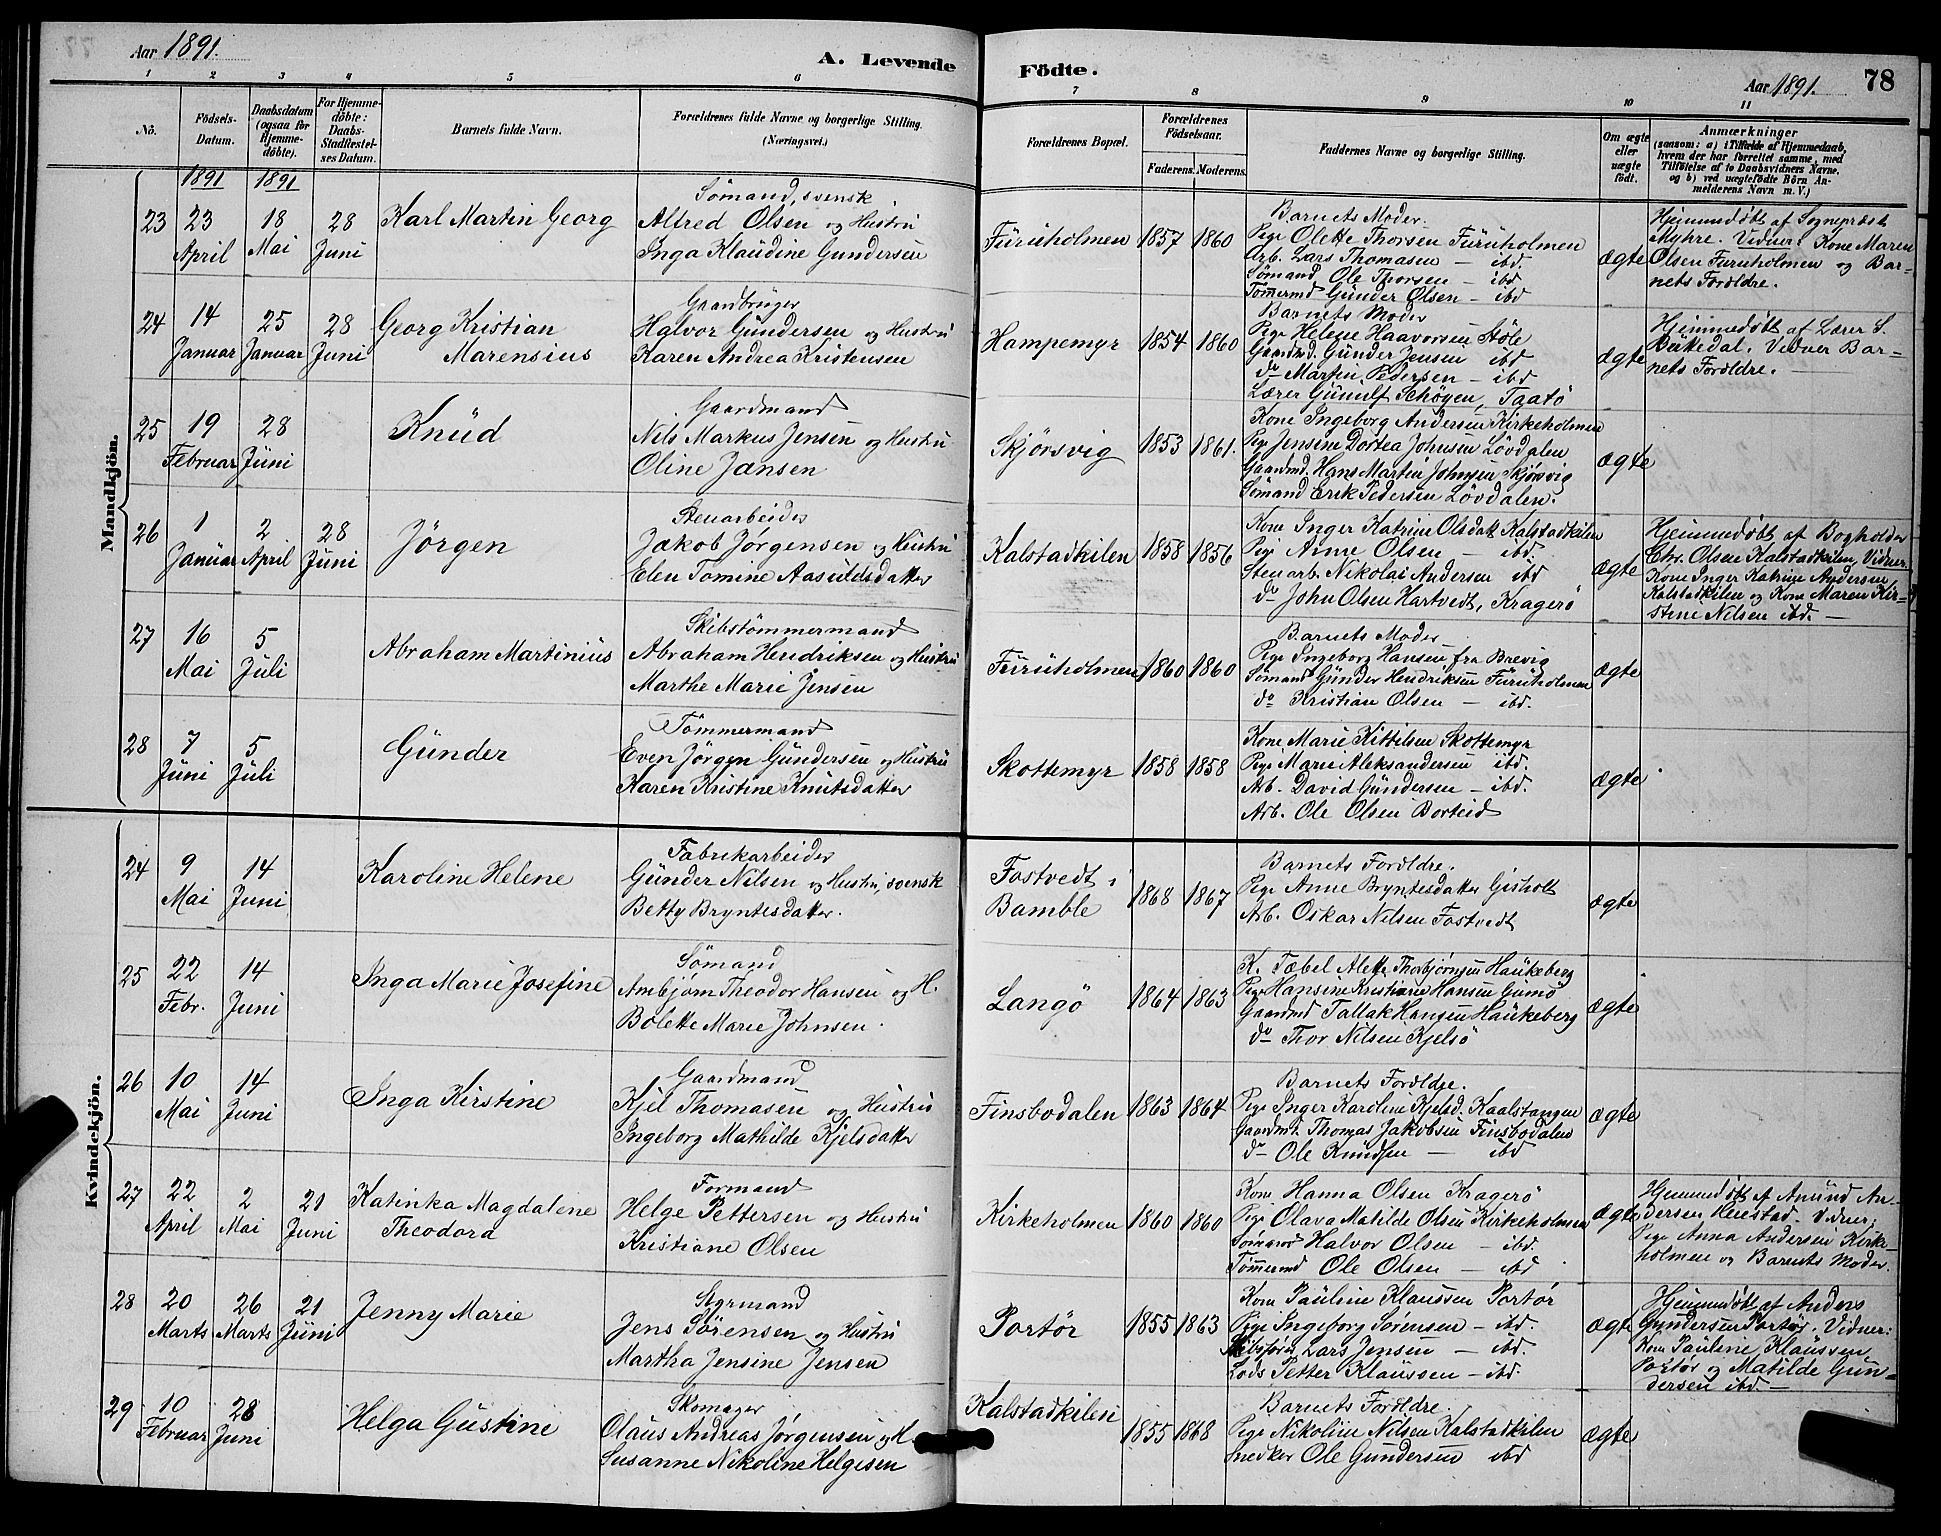 Aar 1891.
A. Levende Födte.
Aar 1891.
78
1 2 3 4 5 6 7 8 9 10 11
No.
Födsels-Datum.
Daabsdatum (ogsaa for Hjemme-döbte).
For Hjemme-döbte: Daabs-Stadfæstelses Datum.
Barnets fulde Navn.
Forældrenes fulde Navne og borgerlige Stilling. (Næringsvei.)
Forældrenes Bopæl.
Forældrenes Födselsaar.
Faderens. Moderens.
Faddernes Navne og borgerlige Stilling.
Om ægte eller uægte födt.
Anmærkninger
(saasom: a) i Tilfælde af Hjemmedaab, hvem der har forrettet samme, med Tilföielse af to Daabsvidners Navne, og b) ved uægtefödte Börn Anmelderens Navn m. V.)
Mandkjön.
1891 1891
23
23 April
18 Mai
28 Juni
Karl Martin Georg
Sömand, svensk
Alfred Olsen og Hustru
Inga Klaudine Gundersen
Furuholmen
1857 1860
Barnets Moder.
Pige Olette Thorsen Furuholmen
Arb. Lars Thomasen — ibd.
Sömand Ole Thorsen — ibd
Tömermd Gunder Olsen — ibd
ægte
Hjemmedøbt af Sognepræst
Myhre. Vidner: Kone Maren
Olsen Furuholmen og Bar-
nets Forældre.
24
14 Januar
25 Januar
28 Juni
Georg Kristian
Marensius
Gaardbruger
Halvor Gundersen og Hustru
Karen Andrea Kristensen
Hampemyr
1854 1860
Barnets Moder
Pige Helene Haavorsen Støle
Gaardmd. Gunder Jensen ibd
do Martin Pedersen — ibd
Lærer Gunulf Schøyen, Taatö
ægte
Hjemmedøbt af Lærer S.
Vidner Bar-
nets Forældre.
25
19 Februar
28 Juni
Knud
Gaardmand
Nils Markus Jensen og Hustru
Oline Jansen
Skjørsvig
1853 1861.
Kone Ingeborg Andersen Kirkeholmen
Pige Jensine Dortea Johnsen Lövdalen
Gaardmd. Hans Martin Johnsen Skjørsvig
Sömand Erik Pedersen Lövdalen.
ægte
26
1 Januar
2 April
28 Juni
Jörgen
Stenarbeider
Jakob Jörgensen og Hustru
Elen Tomine Aasuldsdatter
Kalstadkilen
1858 1856
Kone Inger Katrine Olsdatt. Kalstadkilen
Pige Anne Olsen — ibd.
Stenarb. Nikolai Andersen ibd
do John Olsen Hartvedt, Kragerö
ægte
Hjemmedøbt af Bogholder
Chr. Olsen Kalstadkilen, Vidner.
Kone Inger Katrine Andersen
Kalstadkilen og Kone Maren Kir-
stine Nilsen ibd. —
27
16 Mai
5 Juli
Abraham Martinius
Skibstömmermand
Abraham Hendriksen og Hustru
Marthe Marie Jensen
Furuholmen
1860 1860
Barnets Moder
Pige Ingeborg Hansen fra Brevig
Sömand Gunder Hendriksen Furuholmen
do Kristian Olsen — ibd.
ægte
28
7 Juni
5 Juli
Gunder
Tömmermand
Even Jörgen Gundersen og Hustru
Karen Kristine Knutsdatter
Skottemyr
1858 1858
Kone Marie Kittilsen Skottemyr
Pige Marie Aleksandersen ibd.
Arb. David Gundersen — ibd.
Arb. Ole Olsen Borteid
ægte
Kvindekjön.
24
9 Mai
14 Juni
Karoline Helene
Fabrikarbeider
Gunder Nilsen og Hustru, svensk
Betty Bryntesdatter.
Fostvedt i
Bamble
1868 1867
Barnets Forældre.
Pige Anne Bryntesdatter Gisholt
Arb. Oskar Nilsen Fostvedt
ægte
25
22 Febr.
14 Juni
Inga Marie Josefine
Sömand
Ambjørn Theodor Hansen og H.
Bolette Marie Johnsen.
Langö
1864 1863
K. Tæbel Alette Thorbjørnsen Haukeberg
Pige Hansine Kristiane Hansen Gumö
Gaardmd Tallak Hansen Haukeberg
do Thor Nilsen Kjelsö
ægte
26
10 Mai
14 Juni
Inga Kirstine
Gaardmand
Kjel Thomasen og Hustru
Ingeborg Mathilde Kjelsdatter
Finsbodalen
1863 1864
Barnets Forældre.
Pige Inger Karoline Kjelsd. Kaalstangen
Gaardmd. Thomas Jakobsen Finsbodalen
do Ole Knudsen — ibd
ægte
27
22 April
2 Mai
21 Juni
Katinka Magdalene
Theodora
Formand
Helge Pettersen og Hustru
Kristiane Olsen
Kirkeholmen
1860 1860
Kone Hanna Olsen Kragerö
Pige Olava Matilde Olsen Kirkeholmen
Sömand Halvor Olsen — ibd.
Tömermd Ole Olsen — ibd
ægte
Hjemmedøbt af Anund An-
dersen Heiestad. Vidner:
Pige Anna Andersen Kirke-
holmen og Barnets Moder.
28
20 Marts
26 Marts
21 Juni
Jenny Marie
Styrmand
Jens Sörensen og Hustru
Martha Jensine Jensen
Portör
1855 1863
Kone Pauline Klaussen Portör
Pige Ingeborg Sörensen — ibd.
Skibsförer Lars Jensen — ibd.
Lods Petter Klaussen — ibd.
ægte
Hjemmedøbt af Anders
Gundersen Portör. Vidner:
Kone Pauline Klaussen
Portör og Matilde Gun-
dersen ibd. —
29
10 Februar
28 Juni
Helga Gustine
Skomager
Olaus Andreas Jørgensen og H.
Susanne Nikoline Helgesen
Kalstadkilen
1855 1868
Barnets Forældre.
Pige Nikoline Nilsen Kalstadkilen
Snedker Ole Gundersen ibd
ægte